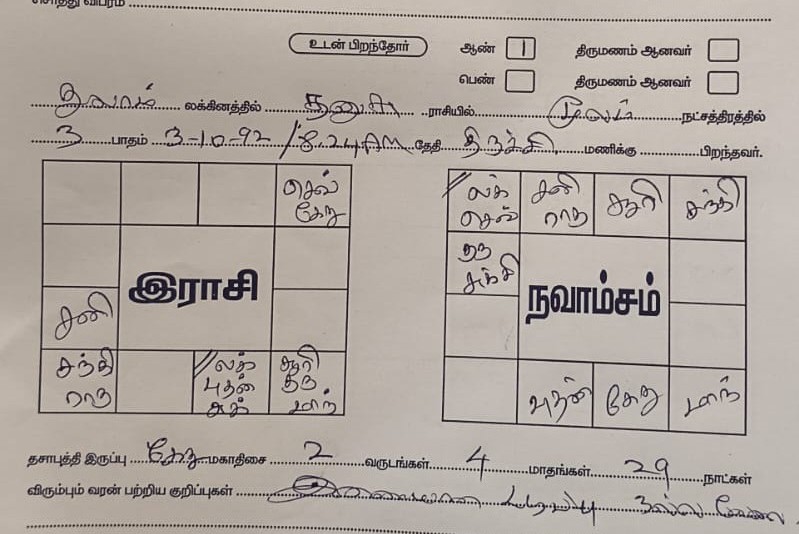 சொத்து விபரம்
உடன் பிறந்தோர் ஆண் 1 திருமணம் ஆனவர்
பெண் திருமணம் ஆனவர்
துலாம் லக்கினத்தில் தனுசு ராசியில் மூலம் நட்சத்திரத்தில்
3 பாதம் 3-10-92 / 8.24AM தேதி திருச்சி மணிக்கு பிறந்தவர்.
செவ் கேது
சனி
இராசி
சந்தி ராகு
லக் புதன் சுக்
சூரி குரு மாந்
லக் செவ்
சனி ராகு
சூரி
சந்தி
குரு சுக்கி
நவாம்சம்
புதன்
கேது
மாந்
தசாபுத்தி இருப்பு கேது மகாதிசை 2 வருடங்கள் 4 மாதங்கள் 29 நாட்கள்
விரும்பும் வரன் பற்றிய குறிப்புகள் இணையான படிப்பு நல்ல வேலை